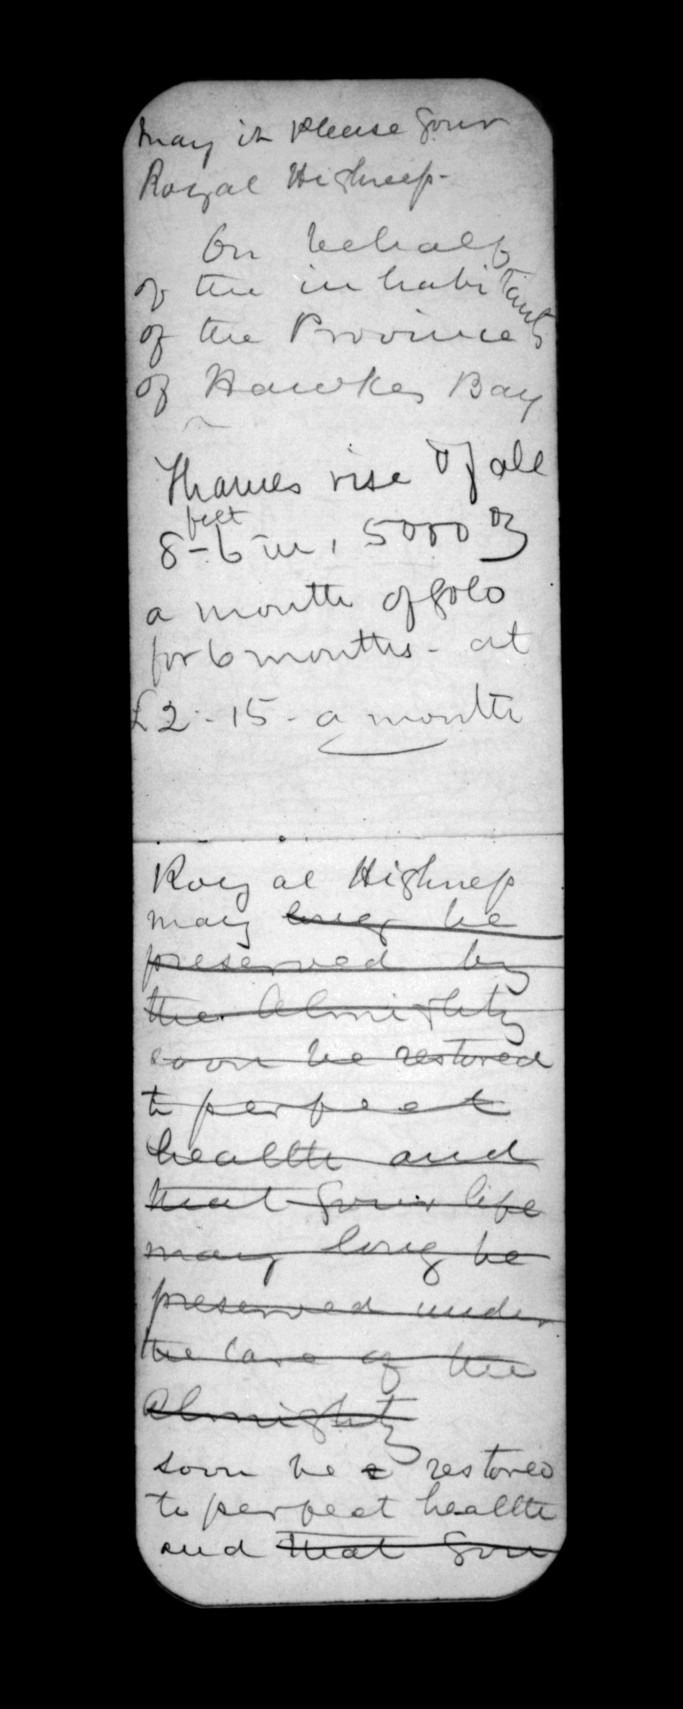 May it please Your
Royal Highness -
On behalf
of the inhabitants
of the Province
of Hawkes Bay
Thames rise of all
feet
8-6 in, 5000 oz
a month of gold
for 6 months - at
£2 - 15 - a month
Royal Highness
may long be
preserved by
the Almighty
soon be restored
to perfect
health and
that Your life
may long be
preserved under
the care of the
Almighty
soon be restored
to perfect health
and that Your